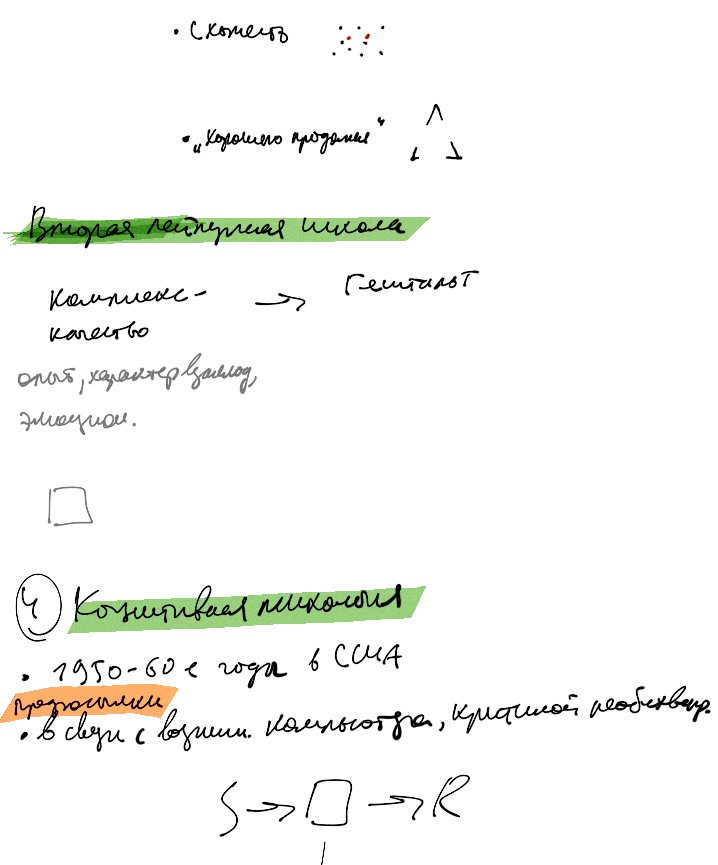 • Схожесть
• „Хорошего продолжения"
Вторая лейпцигская школа
Комплекс-
качество → Гештальт
опыт, характер взгляд,
эмоцион.
4 Когнитивная психология
• 1950-60е года в США
предпосылки
• в связи с возникн. компьютера, критикой необихевиор.
S → □ → R